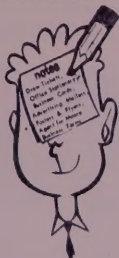 notes
Draw Tickets,
Office Stationery
Business Cards,
Advertising Mailers,
Posters & Flyers,
Business Forms